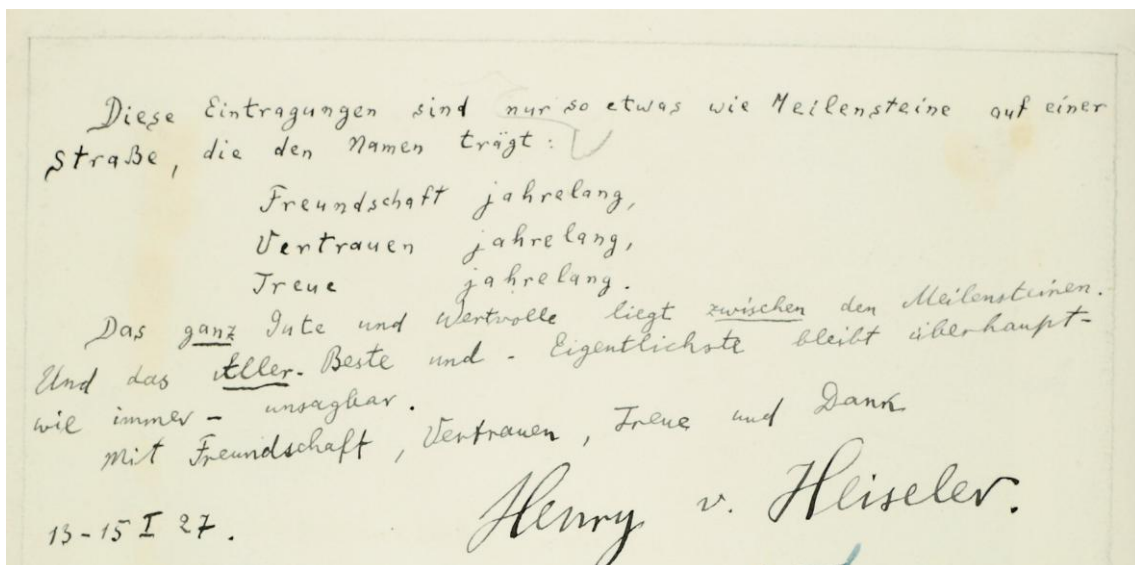 Diese Eintragungen sind nur so etwas wie Meilensteine auf einer
Straße, die den Namen trägt:
Freundschaft jahrelang,
Vertrauen jahrelang,
Treue jahrelang.
Das ganz Gute und Wertvolle liegt zwischen den Meilensteinen.
Und das Aller-Beste und - Eigentlichste bleibt überhaupt -
wie immer - unsagbar.
Mit Freundschaft, Vertrauen, Treue und Dank
Henry v. Heiseler.
13-15 I 27.